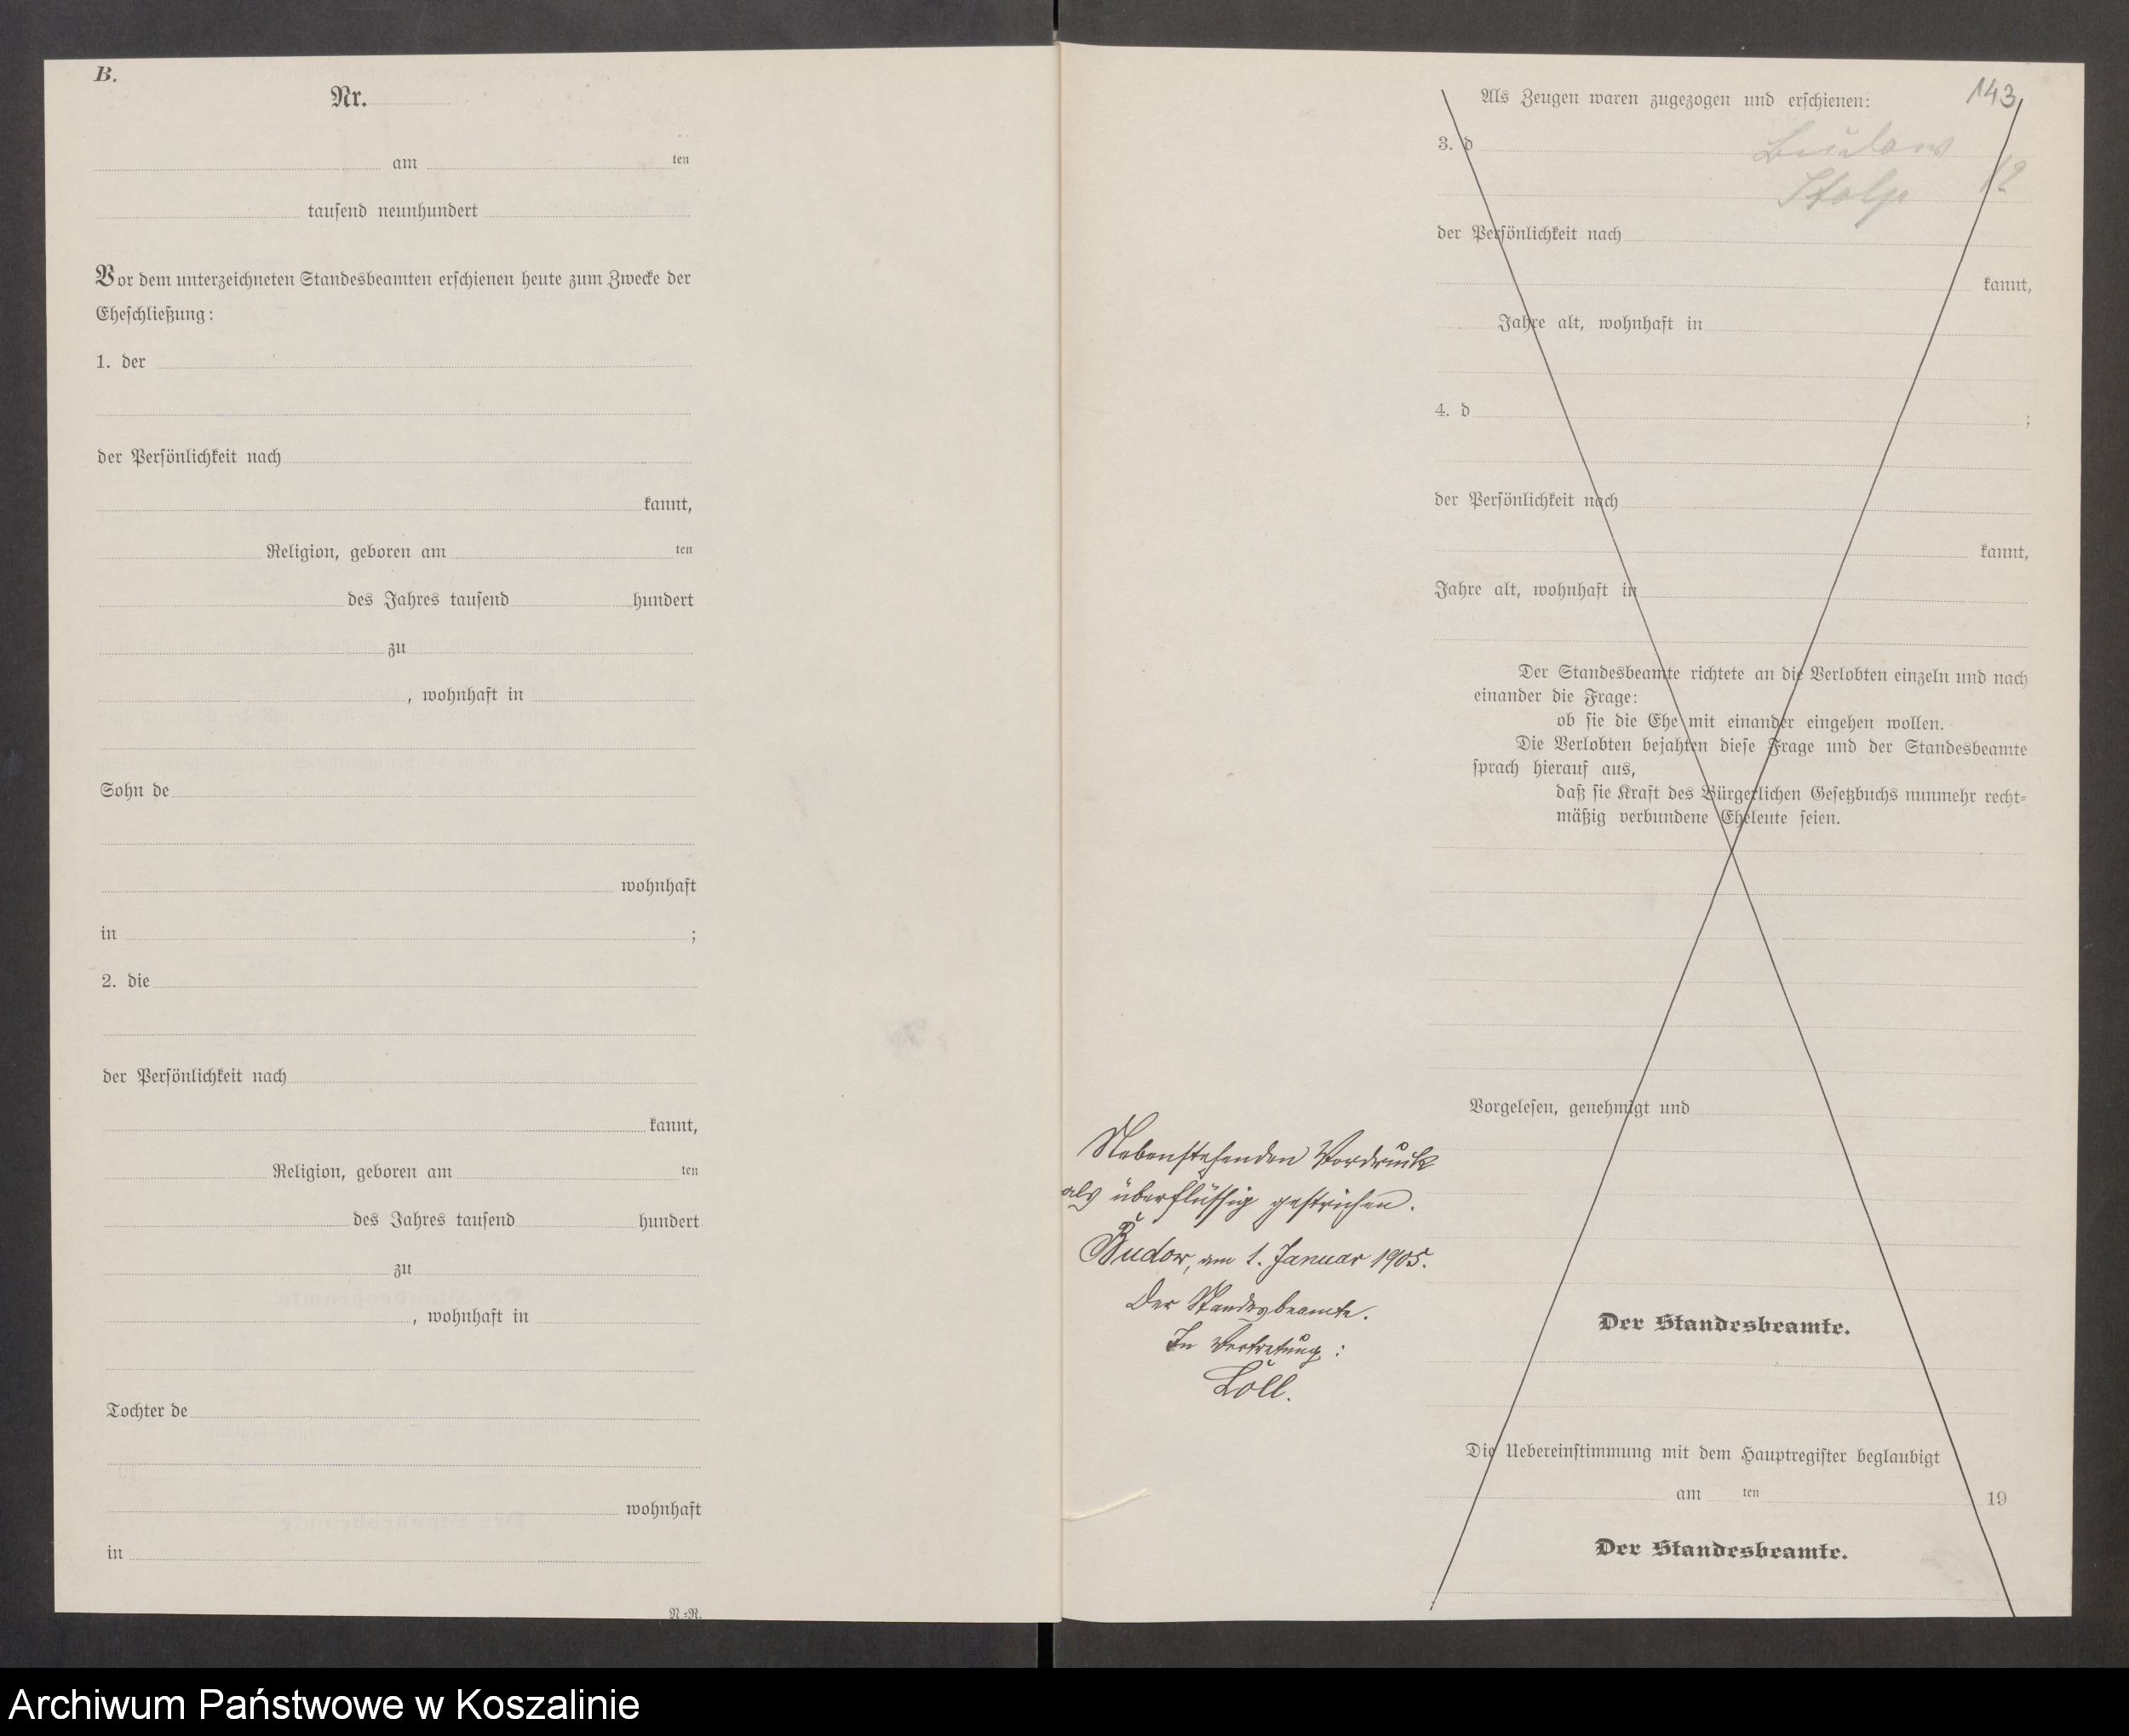 B.
Nr.
am ten
tausend neunhundert
Vor dem unterzeichneten Standesbeamten erschienen heute zum Zwecke der
Eheschließung:
1. der
der Persönlichkeit nach
kannt,
Religion, geboren am ten
des Jahres tausend hundert
zu
, wohnhaft in
Sohn de
wohnhaft
in ;
2. die
der Persönlichkeit nach
kannt,
Religion, geboren am ten
des Jahres tausend hundert
zu
, wohnhaft in
Tochter de
wohnhaft
in
N.=R.
143
Als Zeugen waren zugezogen und erschienen:
3. d
Stolp
der Persönlichkeit nach
kannt,
Jahre alt, wohnhaft in
4. d ;
der Persönlichkeit nach
kannt,
Jahre alt, wohnhaft in
Der Standesbeamte richtete an die Verlobten einzeln und nach
einander die Frage:
ob sie die Ehe mit einander eingehen wollen.
Die Verlobten bejahten diese Frage und der Standesbeamte
sprach hierauf aus,
daß sie Kraft des Bürgerlichen Gesetzbuchs nunmehr recht=
mäßig verbundene Eheleute seien.
Vorgelesen, genehmigt und
Nebenstehenden Vordruck
als überflüssig gestrichen.
Budow, am 1. Januar 1905.
Der Standesbeamte.
In Vertretung:
Löll.
Der Standesbeamte.
Die Uebereinstimmung mit dem Hauptregister beglaubigt
am ten 19
Der Standesbeamte.
Archiwum Państwowe w Koszalinie